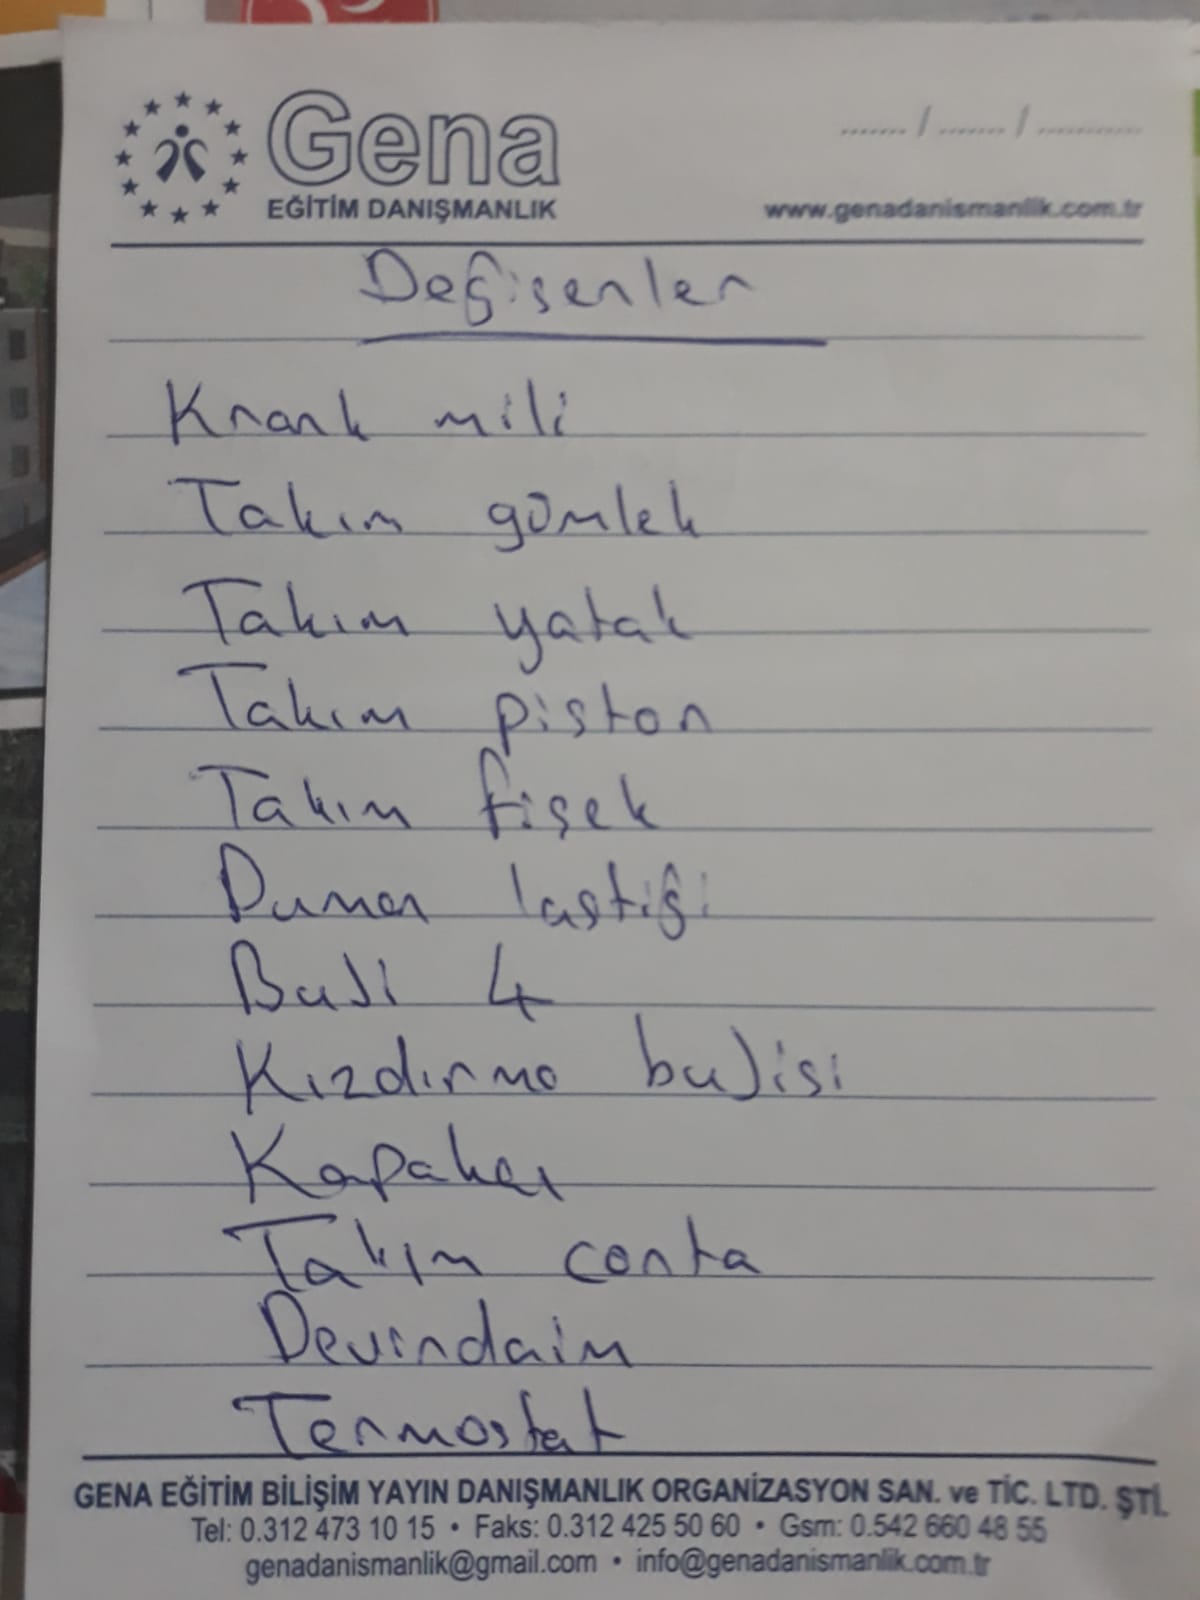 Gena
EĞİTİM DANIŞMANLIK
....... / ....... / ...........
www.genadanismanlik.com.tr
Değişenler
Krank mili
Takım gömlek
Takım yatak
Takım piston
Takım fişek
Dumen lastiği
Buji 4
Kızdırma bujisi
Kapaker
Takım conta
Devirdaim
Termostat
GENA EĞİTİM BİLİŞİM YAYIN DANIŞMANLIK ORGANİZASYON SAN. ve TİC. LTD. ŞTİ.
Tel: 0.312 473 10 15 • Faks: 0.312 425 50 60 • Gsm: 0.542 660 48 55
genadanismanlik@gmail.com • info@genadanismanlik.com.tr